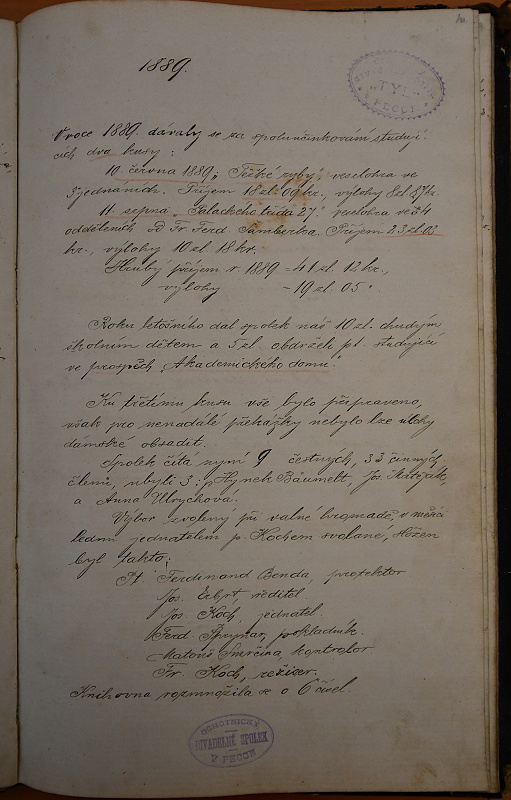 1889.
V roce 1889. dávaly se za spoluúčinkování studují-
cích dva kusy:
10. června 1889, "Těžké ryby", veselohra ve
3 jednáních. Příjem 18 zl. 09 kr., výlohy 8 zl. 87 k.
11. srpna "Palackého třída 27." veselohra ve 4
odděleních od Fr. Ferd. Šamberka. Příjem 23 zl. 03
kr., výlohy 10 zl 18 kr.
Hrubý příjem r. 1889 = 41 zl. 12 kr.,
výlohy – 19 zl. 05 "
Roku letošního dal spolek náš 10 zl. chudým
školním dětem a 5 zl. obdrželi pt. studující
ve prospěch "Akademického domu".
Ku třetímu kusu vše bylo připraveno,
však pro nenadálé překážky nebylo lze úlohy
dámské obsadit.
Spolek čítá nyní 9 čestných, 33 činných
členů, ubyli 3: Hynek Bäumelt, Jos.
a Anna Ulrychová.
Výbor zvolený při valné hromadě, v měsíci
lednu jednatelem p. Kochem svolané, složen
byl takto:
Pt. Ferdinand Benda, protektor
Jos. Erbrt, ředitel.
Jos. Koch, jednatel.
Ferd. pokladník.
Matouš Smrčina, kontrolor
Fr. Koch, režiser.
Knihovna rozmnožila se o 6 čísel.
OCHOTNICKÝ
DIVADELNÍ SPOLEK
V PECCE